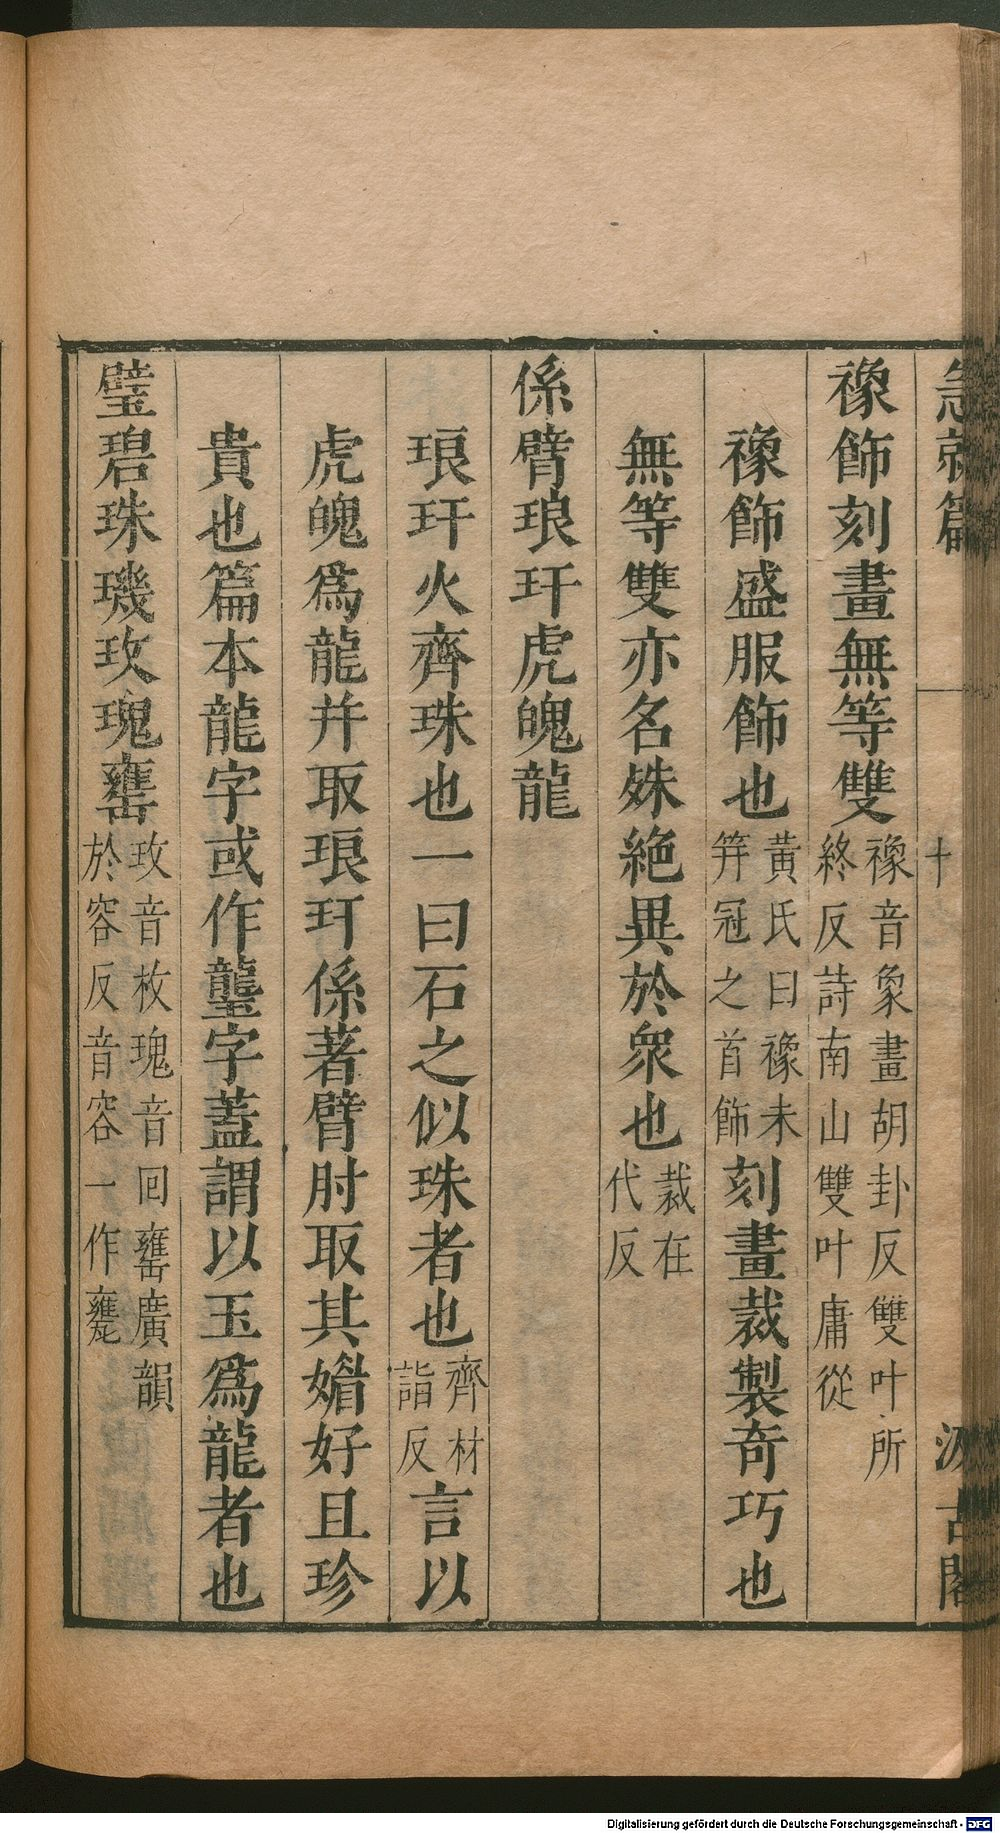 急就篇 十 汲古閣
襐飾刻畫無等雙襐音象畫胡卦反雙叶所終反詩南山雙叶庸從
襐飾盛服飾也黃氏曰襐未笄冠之首飾刻畫裁製奇巧也
無等雙亦名殊絶異於衆也裁在代反
係臂琅玕虎魄龍
琅玕火齊珠也一曰石之似珠者也齊材詣反言以
虎魄爲龍并取琅玕係著臂肘取其媚好且珍
貴也篇本龍字或作蠪字蓋謂以玉爲龍者也
璧碧珠璣玫瑰罋玫音枚瑰音回罋廣韻於容反音容一作甕
Digitalisierung gefördert durch die Deutsche Forschungsgemeinschaft - DFG